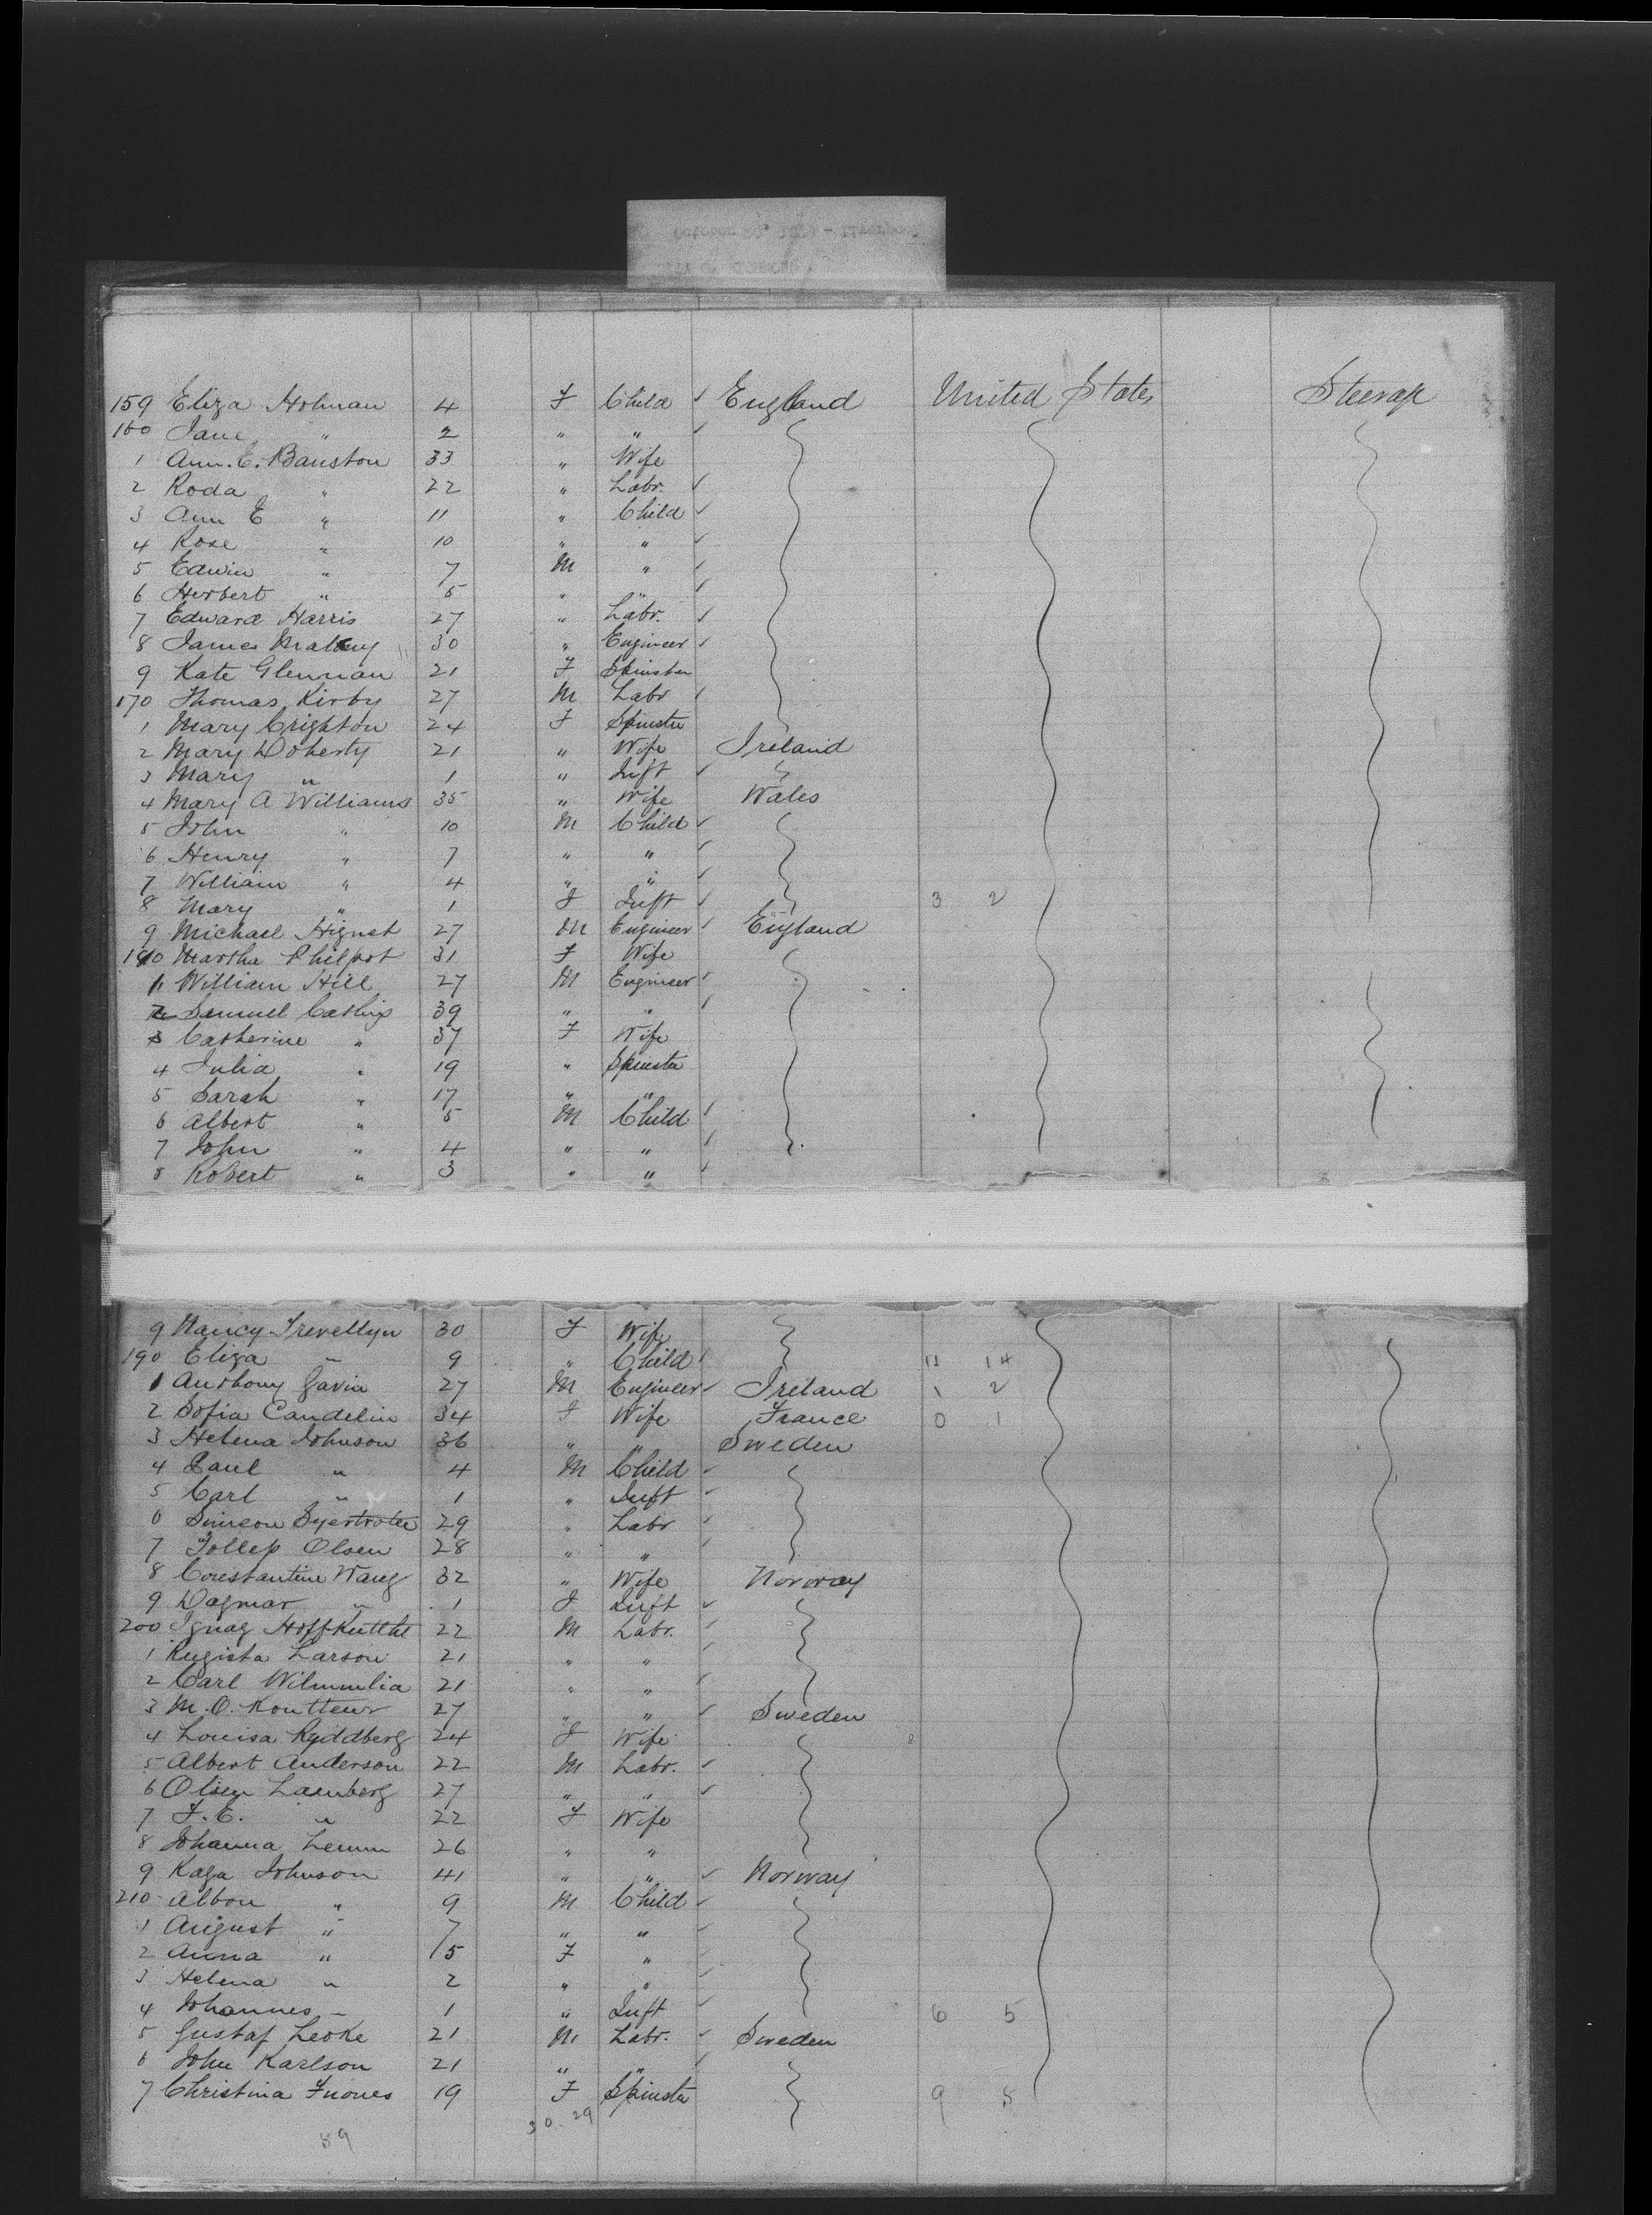 159 Eliza Holman 4 F Child ✓ England United States Steerage
160 Jane " 2 " " ✓
1 Ann. E. Bauston 33 " Wife
2 Roda " 22 " Labr. ✓
3 Ann E " 11 " Child ✓
4 Rose " 10 " " ✓
5 Edwin " 7 M " ✓
6 Herbert " 5 " " ✓
7 Edward Harris 27 " Labr. ✓
8 James 30 " Engineer ✓
9 Kate Glennan 21 F Spinster
170 Thomas Kirby 27 M Labr ✓
1 Mary Crighton 24 F Spinster
2 Mary Doherty 21 " Wife Ireland
3 Mary " 1 " Inft ✓
4 Mary A Williams 35 " Wife Wales
5 John " 10 M Child ✓
6 Henry " 7 " " ✓
7 William " 4 " " ✓
8 Mary " 1 F Inft ✓ 3 2
9 Michael Hignet 27 M Engineer ✓ England
180 Martha Philpot 31 F Wife
1 William Hill 27 M Engineer ✓
2 Samuel 39 " " ✓
3 Catherine " 37 F Wife
4 Julia " 19 " Spinster
5 Sarah " 17 " "
6 Albert " 5 M Child ✓
7 John " 4 " " ✓
8 Robert " 3 " " ✓
9 Nancy Trevellyn 30 F Wife
190 Eliza " 9 " Child ✓ 12 14
1 Anthony Gavin 27 M Engineer ✓ Ireland 1 2
2 Sofia Candelin 34 F Wife France 0 1
3 Helena Johnson 36 " " Sweden
4 Paul " 4 M Child ✓
5 Carl " 1 " Inft ✓
6 Simeon 29 " Labr ✓
7 Tollef Olsen 28 " " ✓
8 Constantine Wang 32 " Wife Norway
9 Dagmar " 1 F Inft ✓
200 Ignaz 22 M Labr. ✓
1 Larson 21 " " ✓
2 Carl 21 " " ✓
3 M. O. 27 " " ✓ Sweden
4 Louisa Ryddberg 24 F Wife
5 Albert Anderson 22 M Labr. ✓
6 Olsen 27 " " ✓
7 F. E. " 22 F Wife
8 Johanna 26 " "
9 Kaga Johnson 41 " " ✓ Norway
210 Albon " 9 M Child ✓
1 August " 7 " " ✓
2 Anna " 5 F " ✓
3 Helena " 2 " " ✓
4 Johannes " 1 " Inft ✓ 6 5
5 Gustaf Leoke 21 M Labr. ✓ Sweden
6 John Karlson 21 " " ✓
7 Christina 19 F Spinster 9 8
30. 29
59